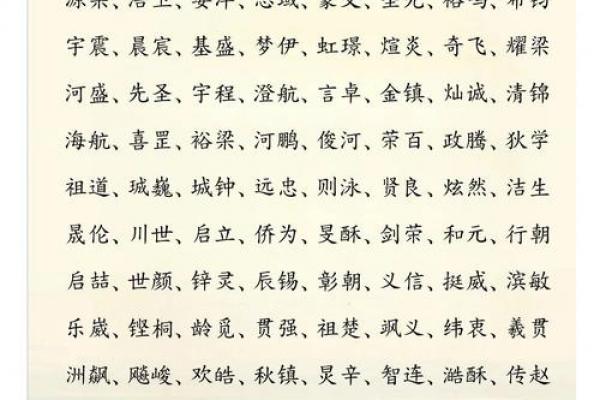 宇震、晨宸、基盛、梦伊、虹璟、煊炎、奇飞、耀梁
河盛、先圣、宇程、澄航、言卓、金镇、灿诚、清锦
海航、喜罡、裕梁、河鹏、俊河、荣百、政腾、狄学
祖道、珹巍、城钟、远忠、则泳、贤良、炫然、洁生
晟伦、川世、启立、侨为、旻酥、剑荣、和元、行朝
启喆、世颜、锌灵、辰锡、彰朝、义信、挺威、滨敏
乐崴、铿桐、龄觅、贯强、祖楚、飒义、纬衷、羲贯
洲飙、飚峻、欢皓、秋镇、炅辛、智连、澔酥、传赵